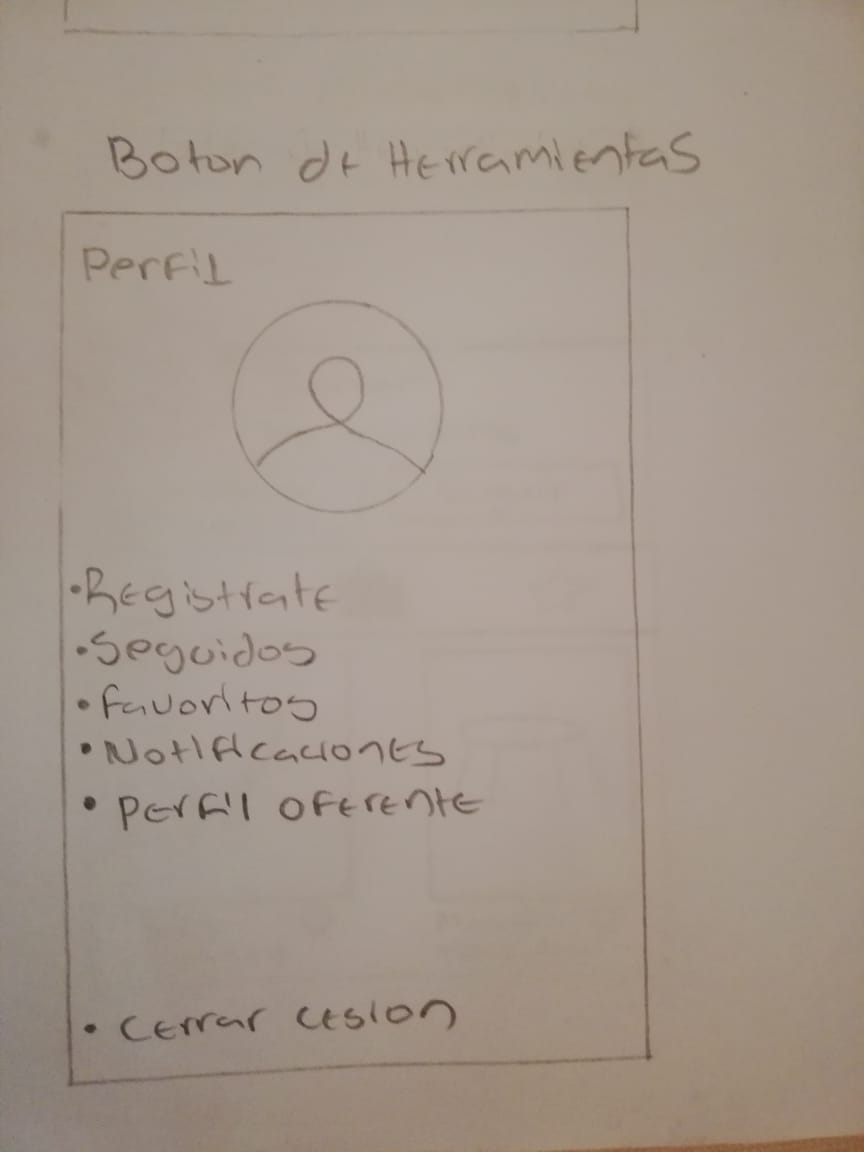 Boton de Herramientas
Perfil
• Registrate
• Seguidos
• favoritos
• Notificaciones
• Perfil oferente
• cerrar cesion